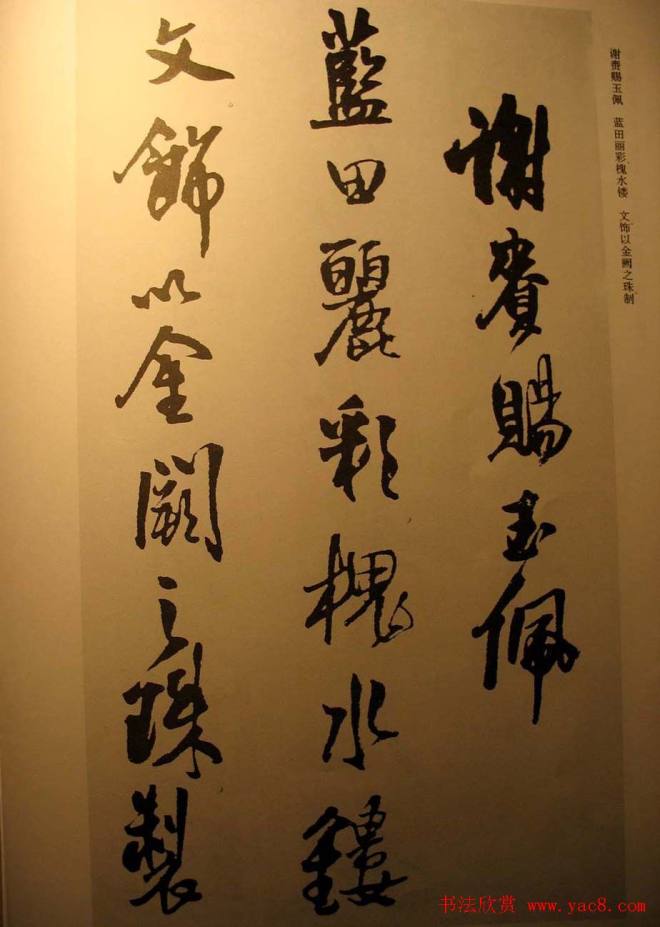 谢赉赐玉佩 蓝田丽彩,槐水镂 文饰,以金阙之珠制,
謝賚賜玉佩
藍田麗彩槐水鏤
文飾以金闕之珠製
书法欣赏 www.yac8.com